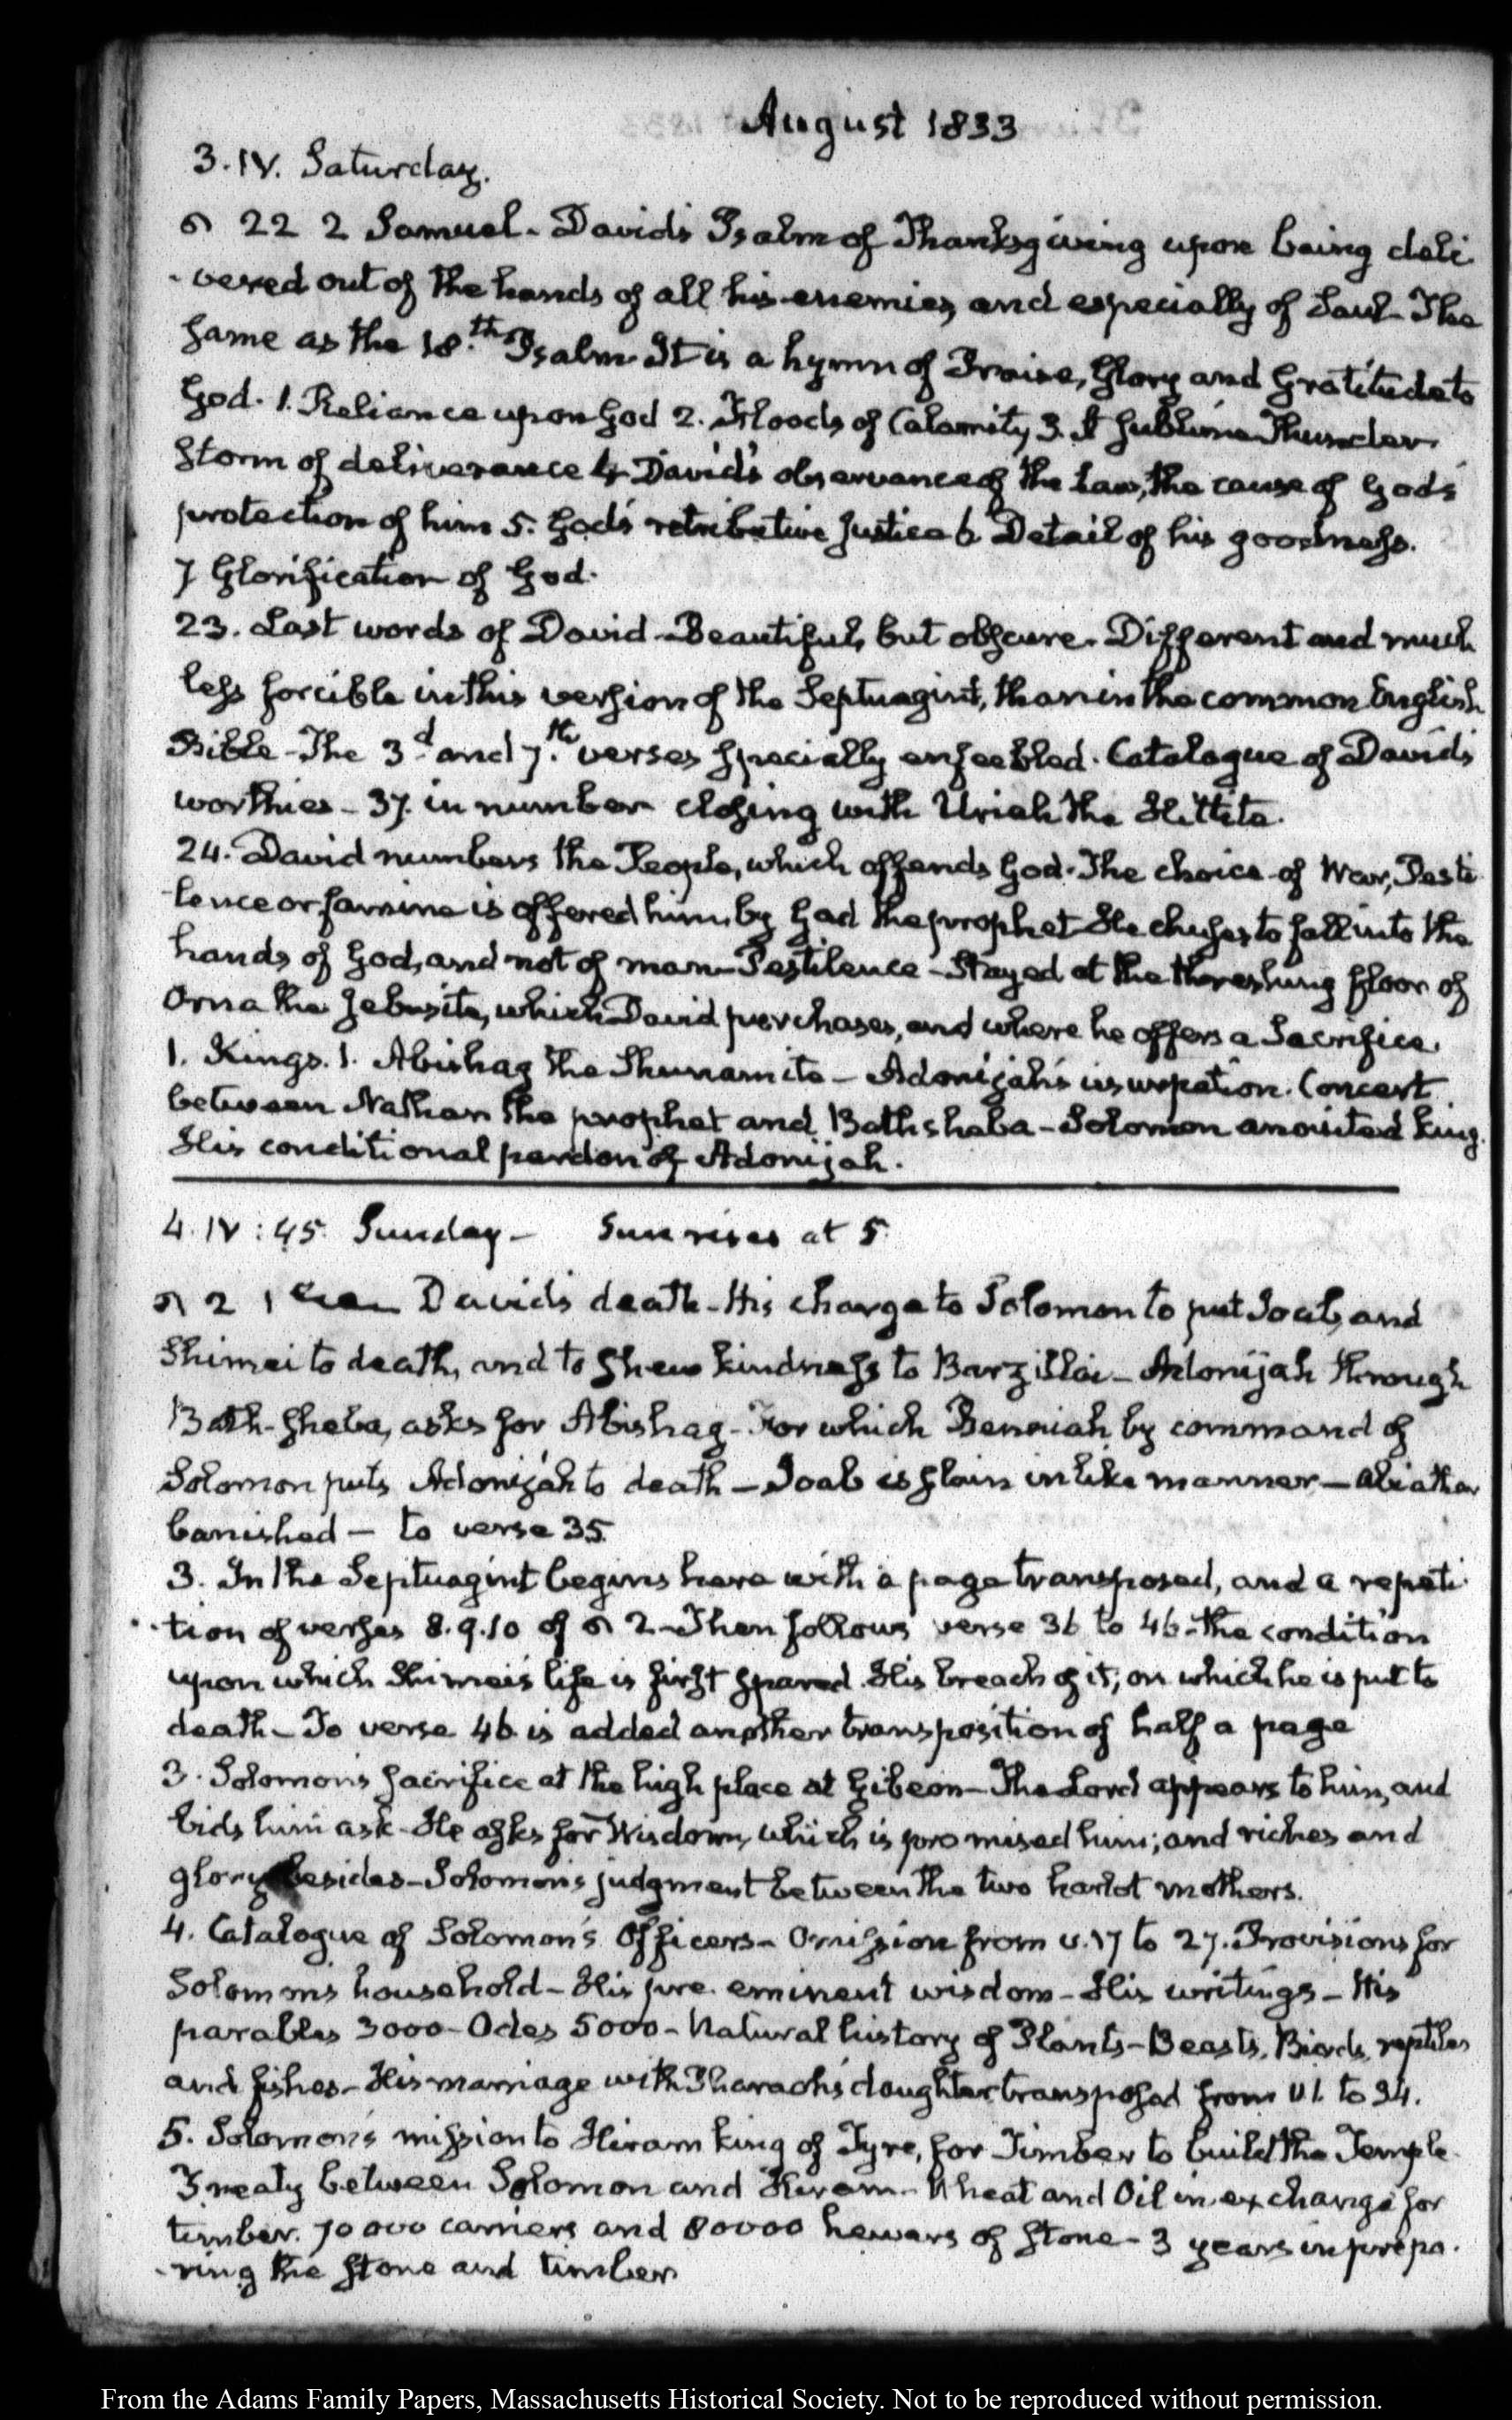 August 1833
3. IV. Saturday.
22 2 Samuel - David's Psalm of Thanksgiving upon being deli
-vered out of the hands of all his enemies, and especially of Saul - The
same as the 18.th Psalm It is a hymn of Praise, Glory and Gratitude to
God. 1. Reliance upon God 2. Floods of Calamity, 3. A sublime Thunder
storm of deliverance 4 David's observance of the Law, the cause of God's
protection of him 5. God's retributive justice 6 Detail of his goodness.
7 Glorification of God.
23. Last words of David - Beautiful, but obscure. Different and much
less forcible in this version of the Septuagint, than in the common English
Bible - The 3d and 7.th verses specially enfeebled. Catalogue of David's
worthies - 37. in number closing with Uriah the Hittite.
24. David numbers the People, which offends God. The choice of War, Pesti
-lence or famine is offered him, by Gad the prophet He chuses to fall into the
hands of God, and not of man - Pestilence - Stayed at the threshing floor of
Orna the Jebusite, which David purchases, and where he offers a Sacrifice.
1. Kings. 1. Abishag the Shunamite - Adonijah's usurpation. Concert
between Nathan the prophet and Bathsheba - Solomon anointed king.
His conditional pardon of Adonijah.
4. IV: 45. Sunday - Sun rises at 5.
2 1 David's death - His charge to Solomon to put Joab, and
Shimei to death, and to shew kindness to Barzillai - Adonijah through
Bath-sheba, asks for Abishag - For which Benaiah by command of
Solomon puts Adonijah to death - Joab is slain in like manner - Abiathar
banished - to verse 35
3. In the Septuagint begins here with a page transposed, and a repeti
-tion of verses 8. 9. 10 of 2 - Then follows verse 36 to 46 - the condition
upon which Shimei's life is first spared. His breach of it; on which he is put to
death - To verse 46 is added another transposition of half a page
3. Solomon's sacrifice at the high place at Gibeon - The Lord appears to him, and
bids him ask - He asks for Wisdom, which is promised him; and riches and
glory besides - Solomon's judgment between the two harlot mothers.
4. Catalogue of Solomon's Officers - Omission from v. 17 to 27. Provisions for
Solomons household - His pre eminent wisdom - His writings - His
parables 3000 - Odes 5000 - Natural history of Plants - Beasts, Birds, reptiles
and fishes - His marriage with Pharaoh's daughter transposed from v. 1. to 34.
5. Solomon's mission to Hiram king of Tyre, for Timber to build the Temple
Treaty between Solomon and Hiram - Wheat and Oil in exchange for
timber. 70 000 carriers and 80000 hewers of stone - 3 years in prepa
-ring the stone and timber
From the Adams Family Papers, Massachusetts Historical Society. Not to be reproduced without permission.